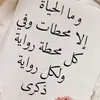 وما الحياة
إلا محطات وفي
كل محطة رواية
ولكل رواية
ذكرى